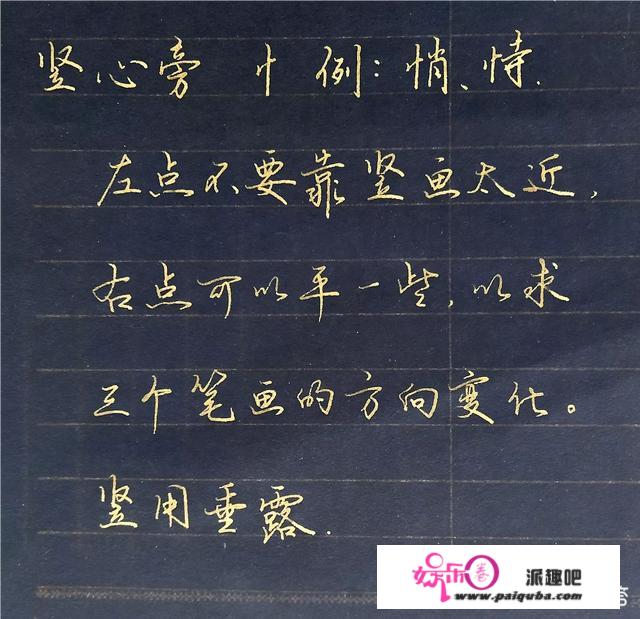 竖心旁 忄 例：悄、恃.
左点不要靠竖画太近，
右点可以平一些，以求
三个笔画的方向变化。
竖用垂露.
娱乐圈 派趣吧
www.paiquba.com